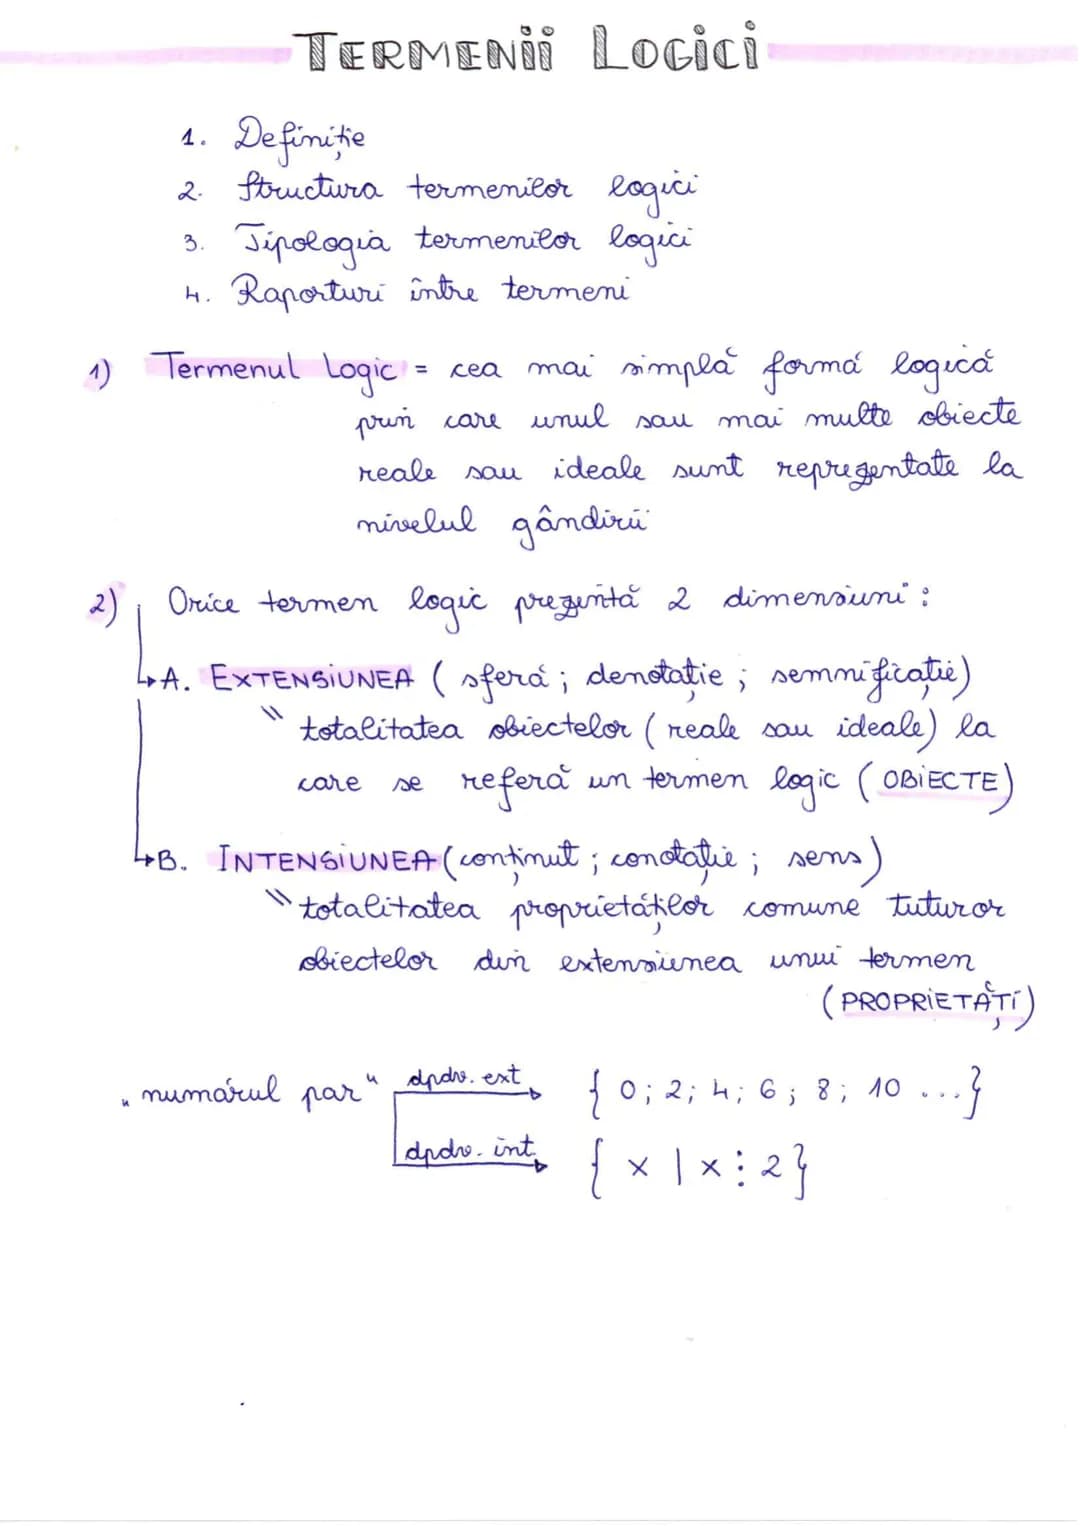 TERMENII LOGICI
1. Definiție
2. Structura termenilor logici
3. Tipologia termenilor logici
4. Raporturi între termeni
1) Termenul Logic = cea mai simplă formă logică
prin care unul sau mai multe obiecte
reale sau ideale sunt reprezentate la
nivelul gândirii
2) Orice termen logic prezintă 2 dimensiuni :
A. EXTENSIUNEA ( sferă ; denotație ; semnificație)
" totalitatea obiectelor ( reale sau ideale) la
care se referă un termen logic ( OBIECTE)
B. INTENSIUNEA (conținut ; conotație ; sens)
" totalitatea proprietăților comune tuturor
obiectelor din extensiunea unui termen
( PROPRIETĂȚI)
„ numărul par “ dpdv. ext { 0 ; 2 ; 4 ; 6 ; 8 ; 10 ...}
dpdv. int { x | x ⋮ 2 }